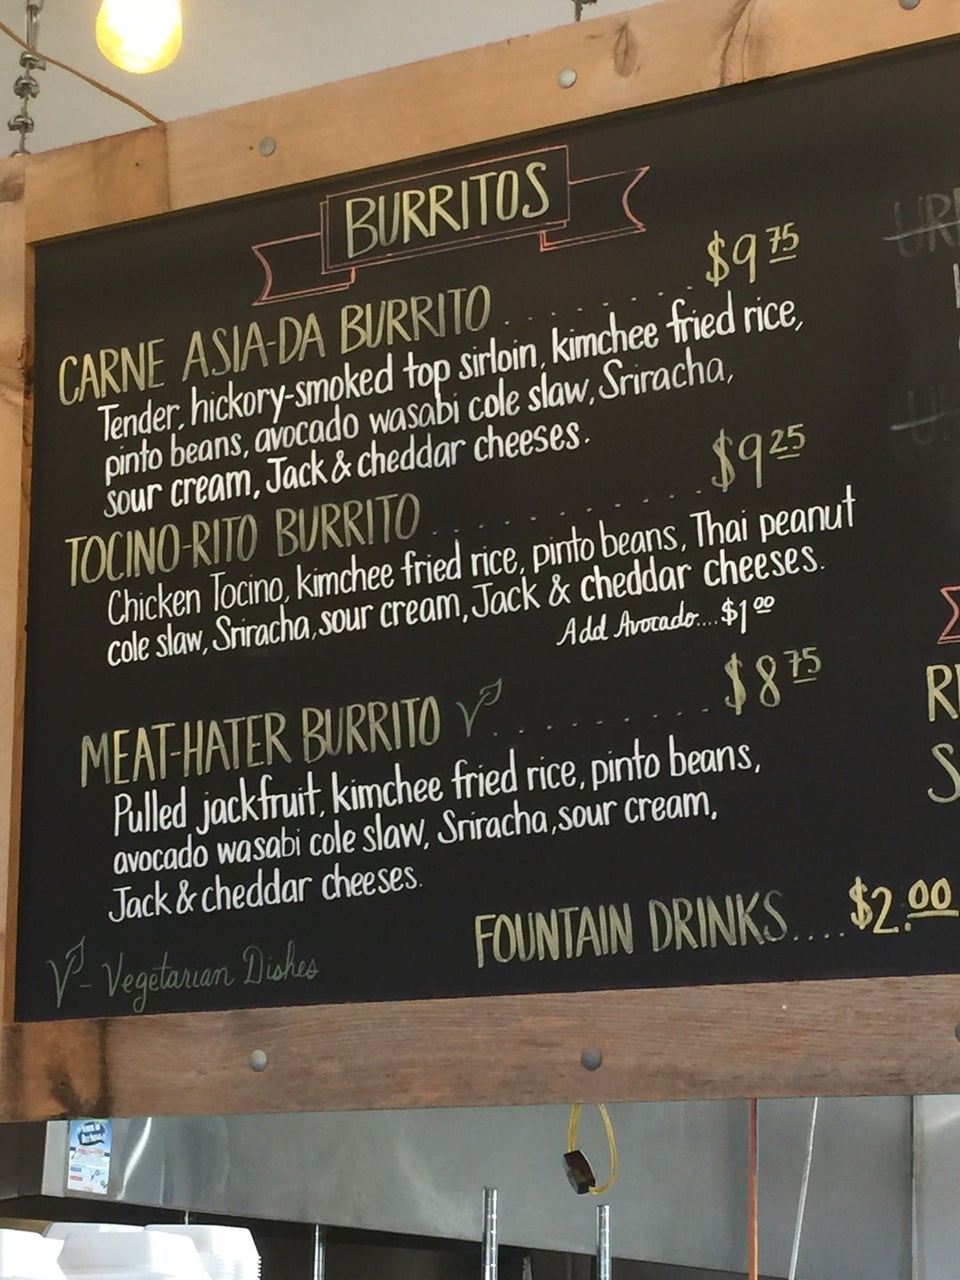 BURRITOS
CARNE ASIA-DA BURRITO ........ $9 75
Tender, hickory-smoked top sirloin, kimchee fried rice,
pinto beans, avocado wasabi cole slaw, Sriracha,
sour cream, Jack & cheddar cheeses.
TOCINO-RITO BURRITO .......... $9 25
Chicken Tocino, kimchee fried rice, pinto beans, Thai peanut
cole slaw, Sriracha, sour cream, Jack & cheddar cheeses.
Add Avocado....$1 00
MEAT-HATER BURRITO V ......... $8 75
Pulled jackfruit, kimchee fried rice, pinto beans,
avocado wasabi cole slaw, Sriracha, sour cream,
Jack & cheddar cheeses.
FOUNTAIN DRINKS....$2.00
V - Vegetarian Dishes